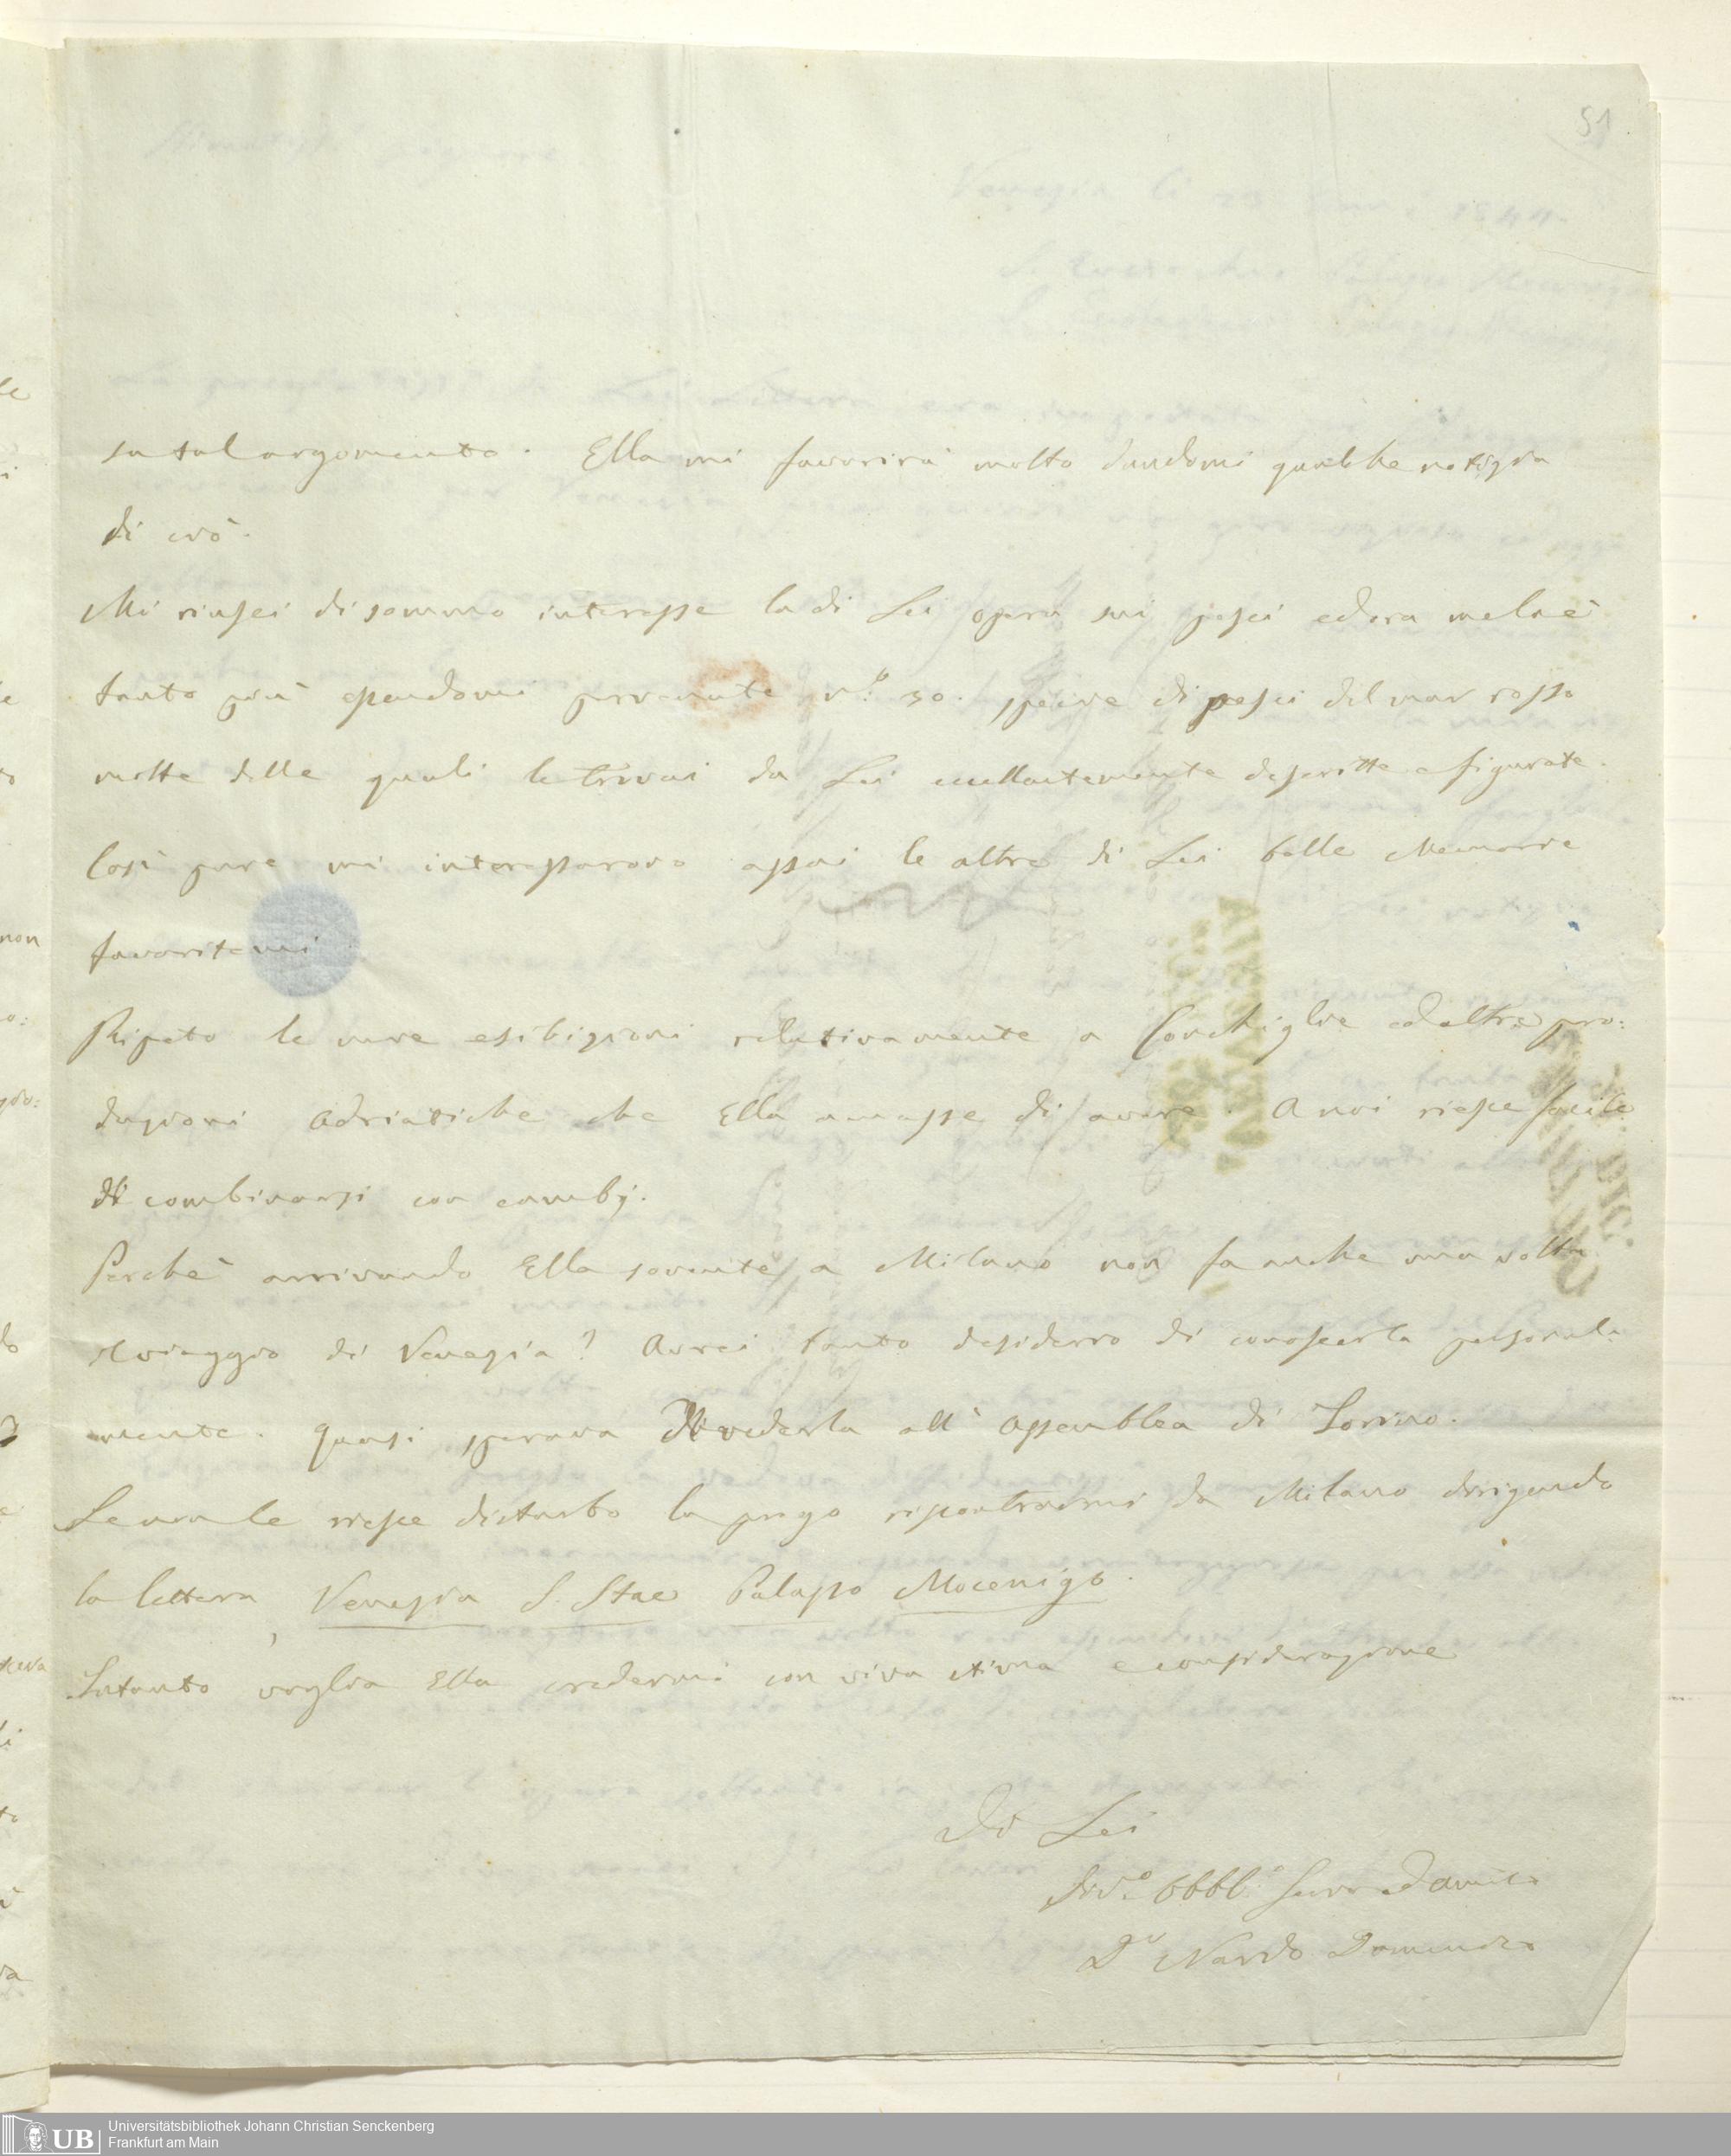 51
su tal argomento. Ella mi favorirà molto dandomi qualche notizia
di ciò.
Mi riuscì di sommo interesse la di Lei opera sui pesci ed ora me lo è
tanto più essendomi pervenute n.º 30. specie di pesci del mar rosso
molte delle quali le trovai da Lei esattamente descritte e figurate.
Così pure mi interessarono assai le altre di Lei belle Memorie
favoritemi
Ripeto le mie esibizioni relativamente a Conchiglie ed altre pro:
duzioni Adriatiche che Ella amasse di avere. A noi riesce facile
di combinarsi con cambj.
Perchè arrivando Ella sovente a Milano non fa anche una volta
il viaggio di Venezia? Avrei tanto desiderio di conoscerla personal-
mente. Quasi sperava di vederla all' Assemblea di Torino.
Se non le riesce disturbo la prego riscontrarmi da Milano dirigendo
la lettera, Venezia S. Stae Palazzo Mocenigo.
Intanto voglia Ella credermi con viva stima e considerazione
Di Lei
Div.º Obbl.º Servo ed amico
D.r Nardo Domenico
Universitätsbibliothek Johann Christian Senckenberg
UB Frankfurt am Main